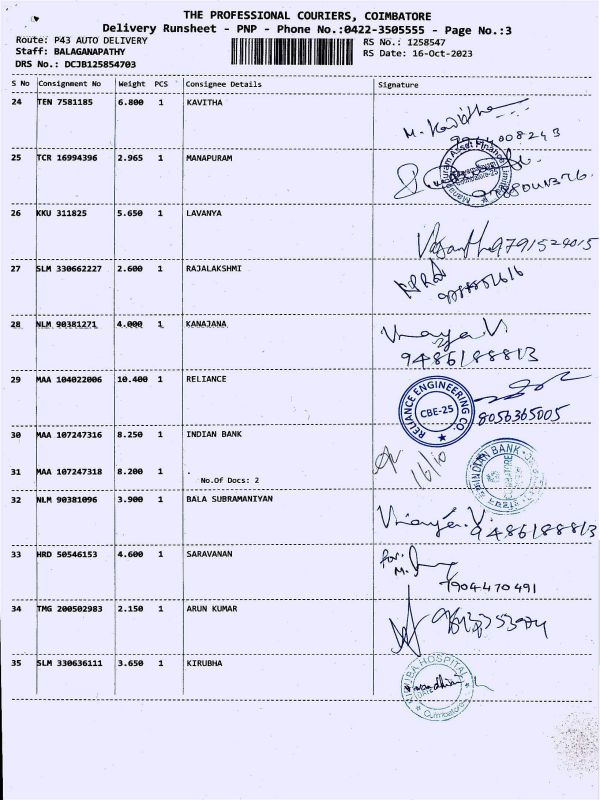 THE PROFESSIONAL COURIERS, COIMBATORE
Delivery Runsheet - PNP - Phone No.:0422-3505555 - Page No.:3
Route: P43 AUTO DELIVERY
RS No.: 1258547
Staff: BALAGANAPATHY
RS Date: 16-Oct-2023
DRS No.: DCJB125854703
S No Consignment No Weight PCS Consignee Details Signature
24 TEN 7581185 6.800 1 KAVITHA
M. Kavitha
25 TCR 16994396 2.965 1 MANAPURAM
26 KKU 311825 5.650 1 LAVANYA
9791524015
27 SLM 330662227 2.600 1 RAJALAKSHMI
28 NLM 90381271 4.000 1 KANAJANA
9486188813
29 MAA 104022006 10.400 1 RELIANCE
RELIANCE ENGINEERING CO.
CBE-25
8056365005
30 MAA 107247316 8.250 1 INDIAN BANK
16/10
INDIAN BANK
31 MAA 107247318 8.200 1 .
No.Of Docs: 2
32 NLM 90381096 3.900 1 BALA SUBRAMANIYAN
9486188813
33 HRD 50546153 4.600 1 SARAVANAN
for.
M.
7904470491
34 TMG 200502983 2.150 1 ARUN KUMAR
35 SLM 330636111 3.650 1 KIRUBHA
HOSPITAL
DATE
Coimbatore